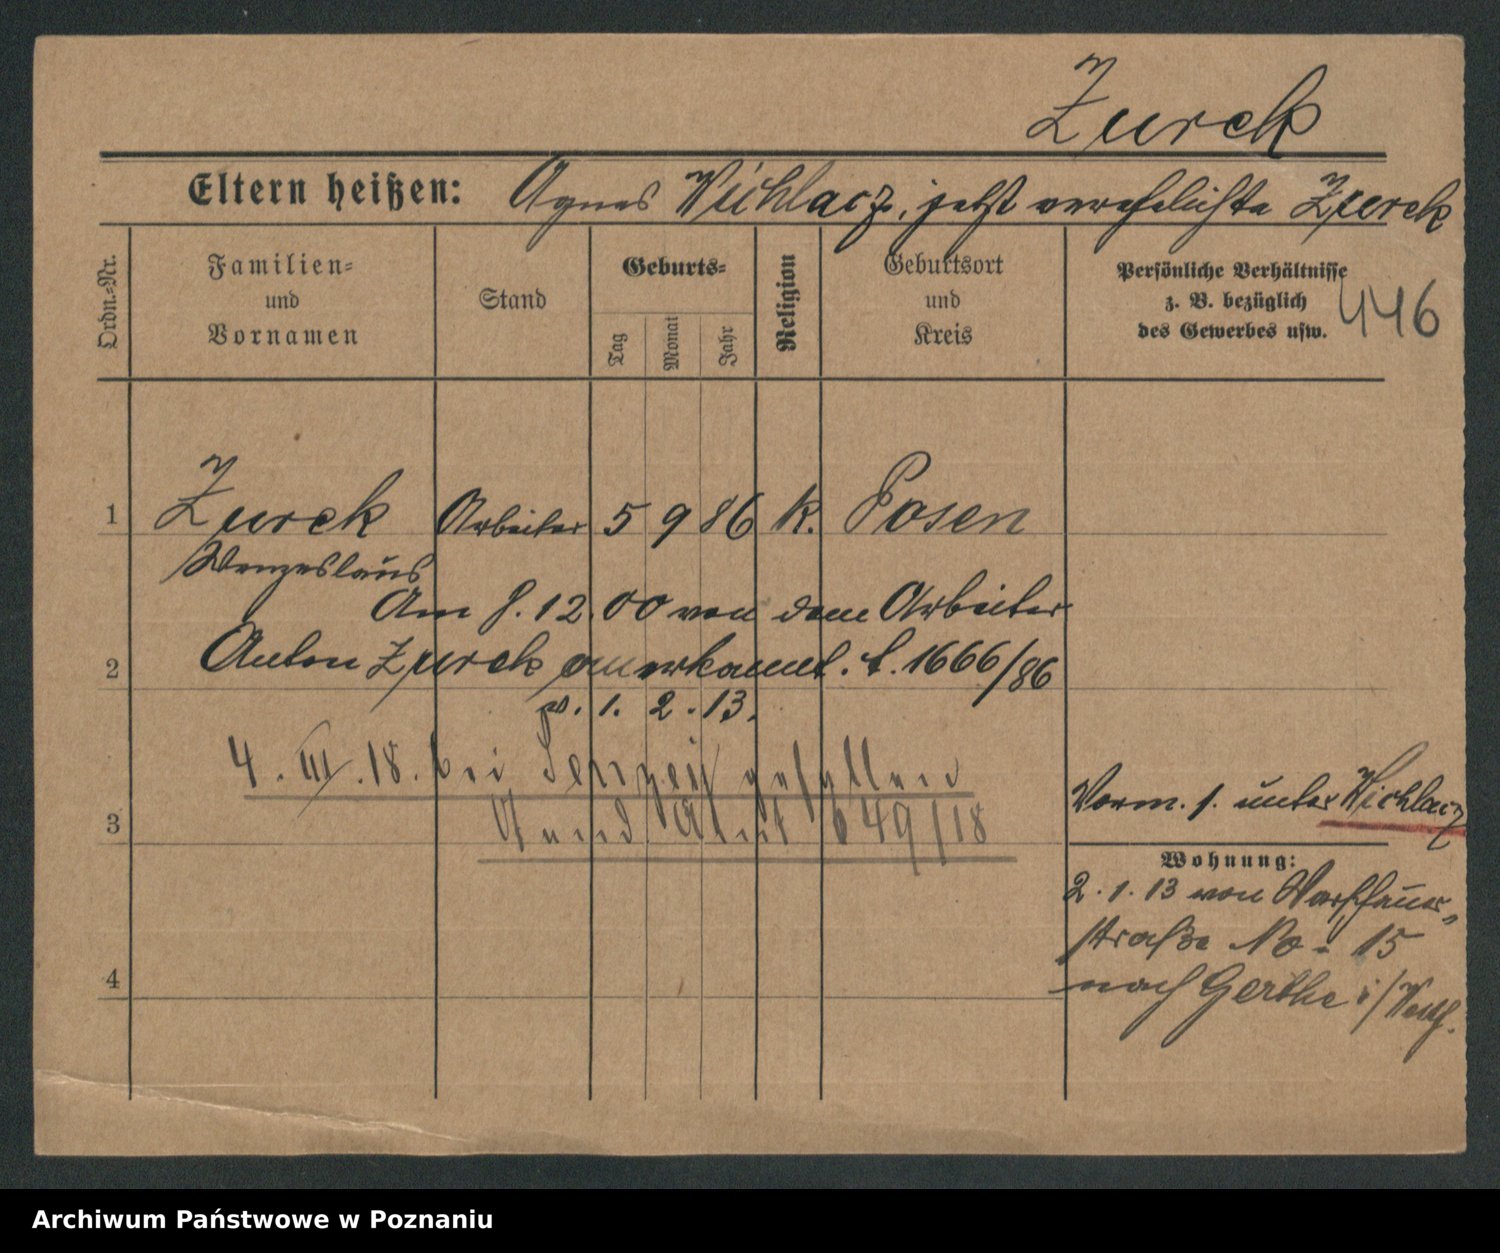 Zurek
Eltern heißen: Agnes Wichlacz, jetzt verehelichte Zurek
Ordn.-Nr.
Familien- und Vornamen
Stand
Geburts-
Tag
Monat
Jahr
Religion
Geburtsort und Kreis
Persönliche Verhältnisse
z. B. bezüglich
des Gewerbes usw.
446
1 Zurek Arbeiter 5 9 86 k. Posen
Wenzeslaus
Am 8.12.00 von dem Arbeiter
2 Anton Zurek anerkannt. t. 1666/86
v. 1. 2. 13.
4. III. 18. bei gefallen
3 649/18
Vorm. s. unter Wichlacz
Wohnung:
2.1.13 von Warschauer-
straße No. 15
nach Gerthe i/Westf.
4
Archiwum Państwowe w Poznaniu